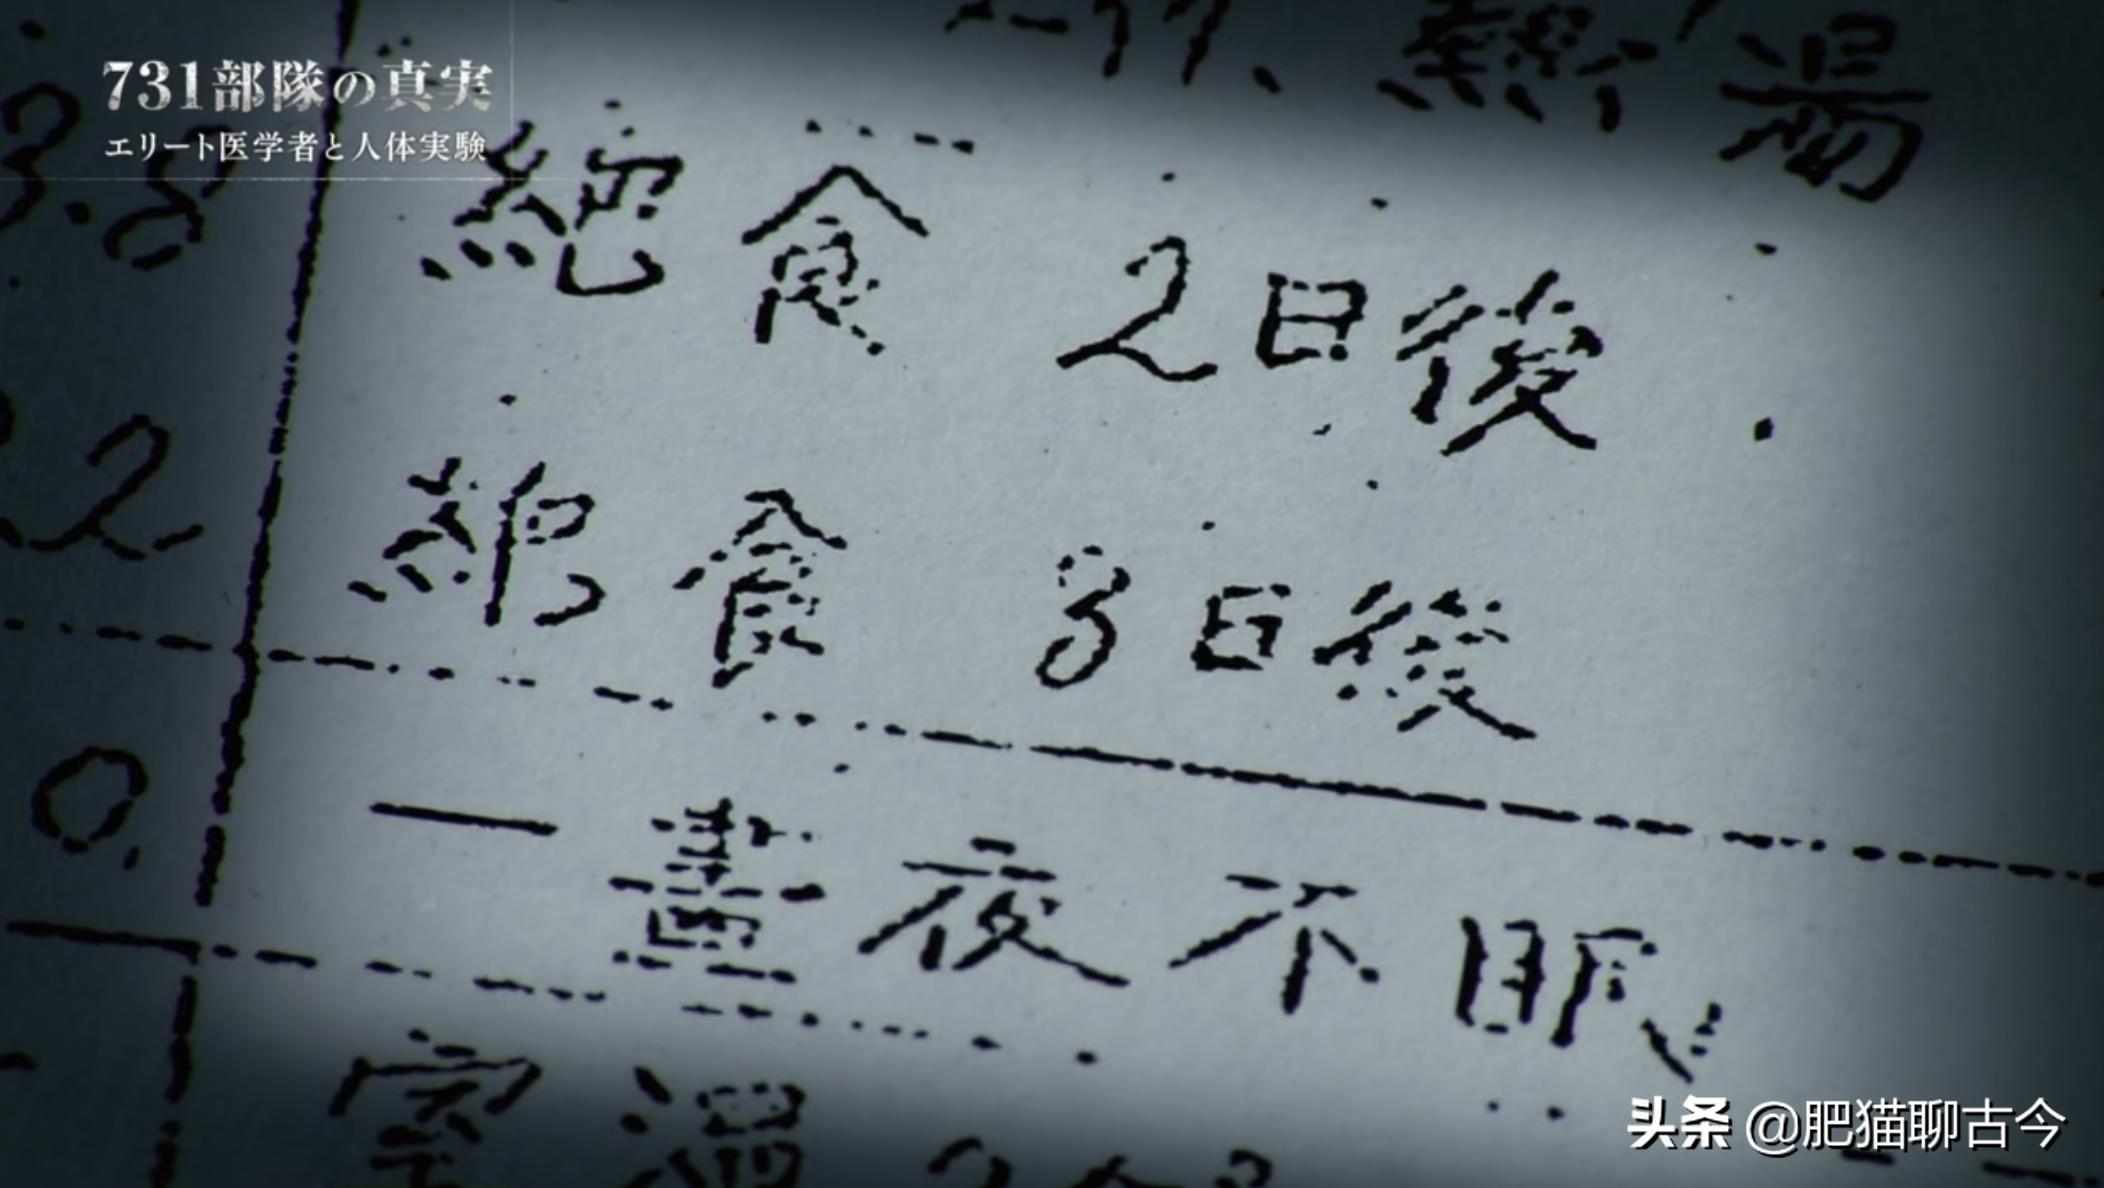 731部隊の真実
エリート医学者と人体実験
熱湯
3.8 絶食 2日後
2 絶食 3日後
0. 一晝夜不眠
室温
头条 @肥猫聊古今